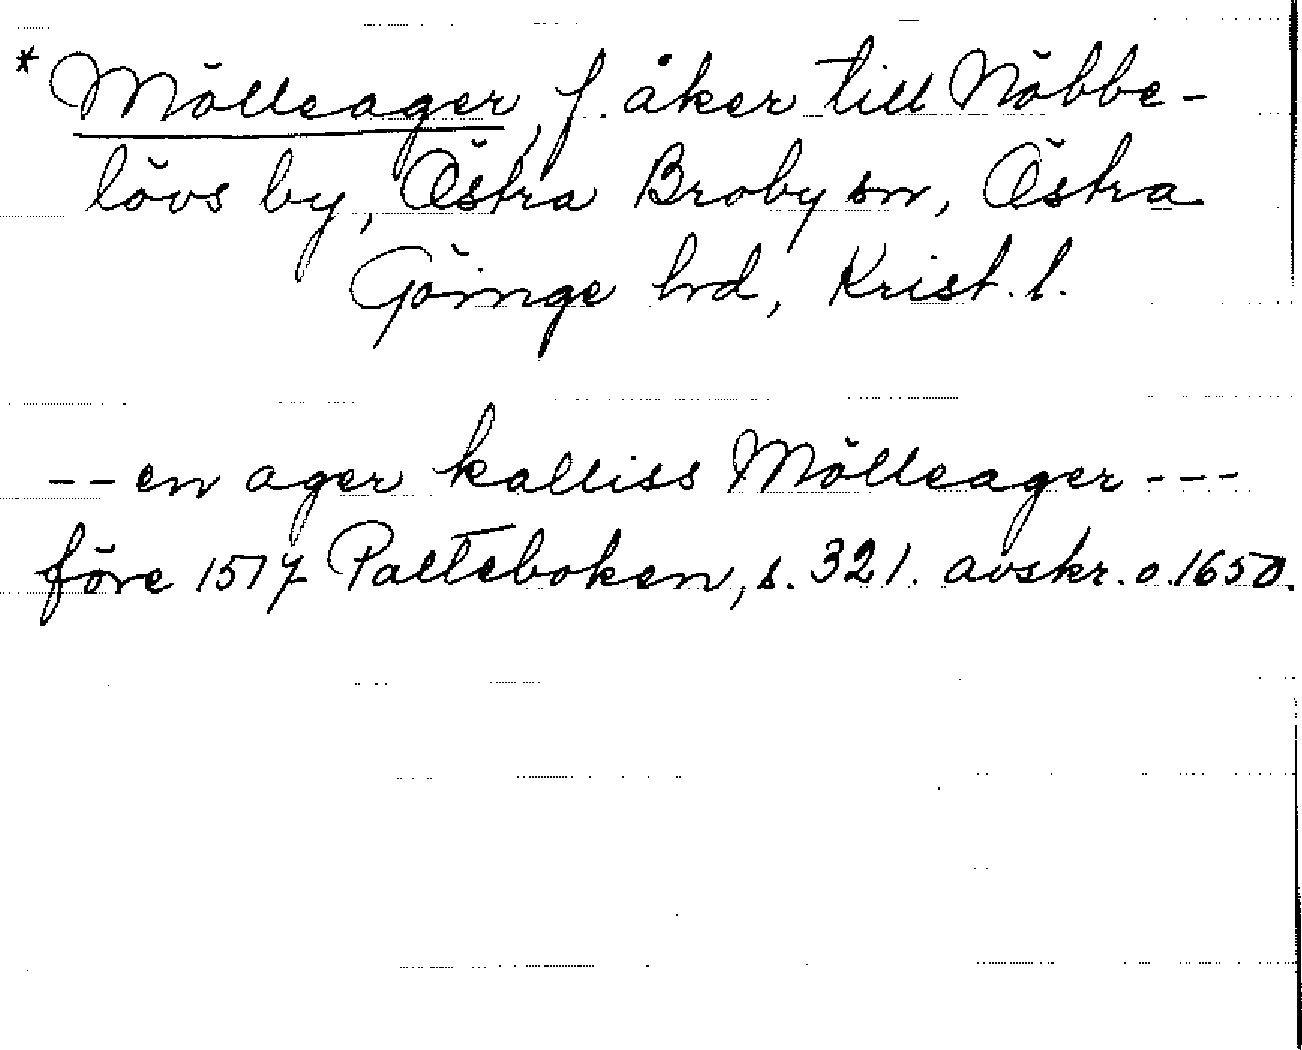 * Mölleager, f. åker till Nöbbe-
lövs by, Östra Broby sn, Östra
Göinge hd, Krist. l.
-- en ager kalliss Mölleager ---
före 1517 Palteboken, s. 321. avskr. o. 1650.